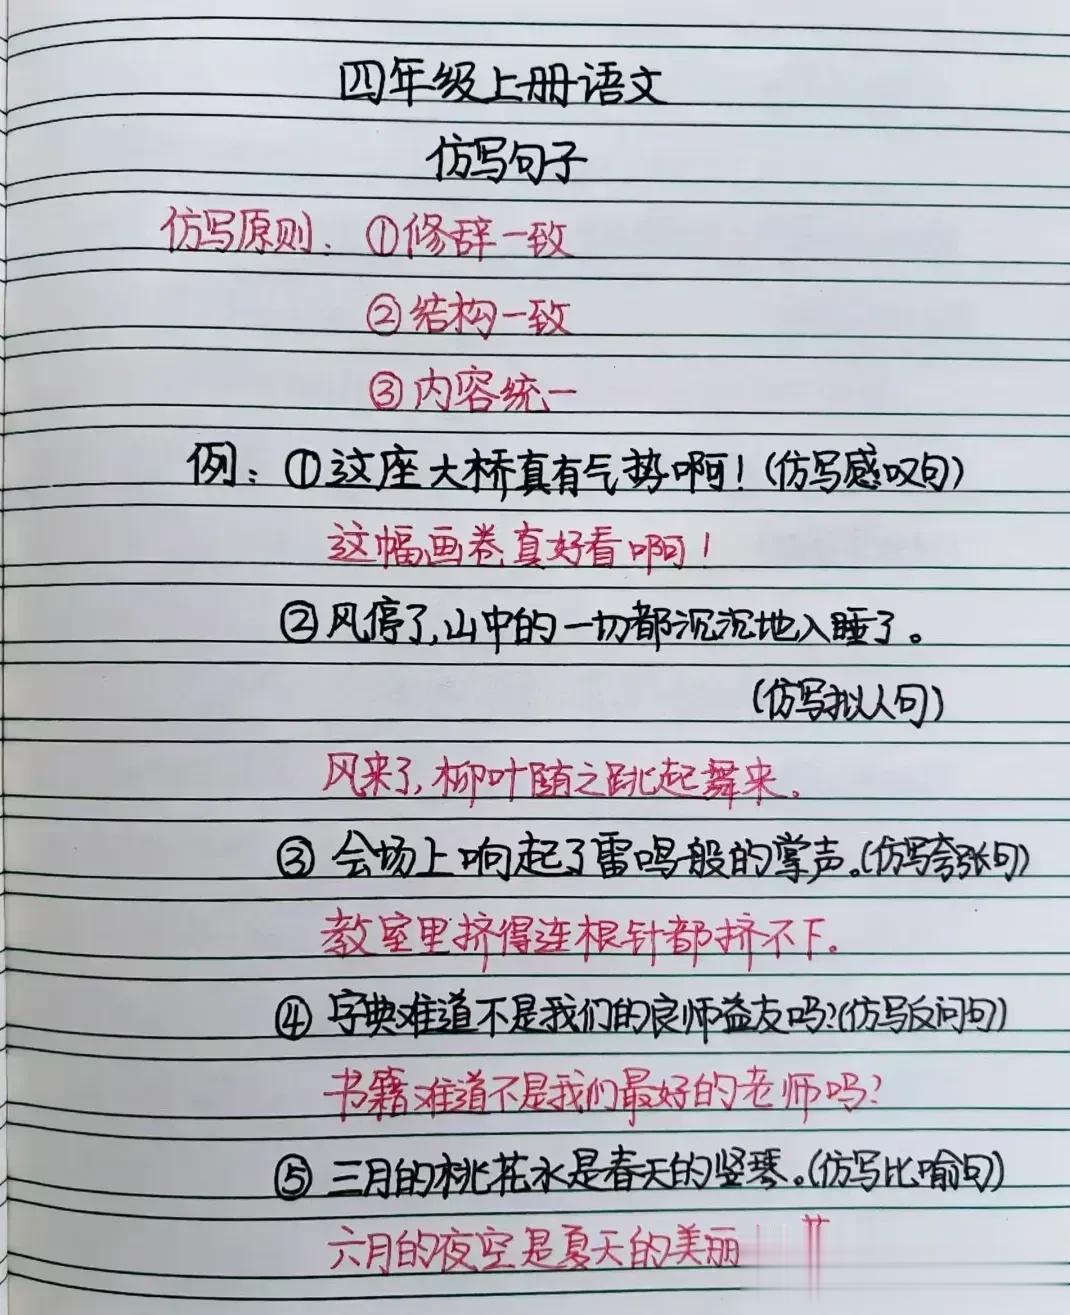 四年级上册语文
仿写句子
仿写原则：①修辞一致
②结构一致
③内容统一
例：①这座大桥真有气势啊！(仿写感叹句)
这幅画卷真好看啊！
②风停了,山中的一切都沉沉地入睡了。
(仿写拟人句)
风来了,柳叶随之跳起舞来。
③会场上响起了雷鸣般的掌声。(仿写夸张句)
教室里挤得连根针都挤不下。
④字典难道不是我们的良师益友吗?(仿写反问句)
书籍难道不是我们最好的老师吗?
⑤三月的桃花水是春天的竖琴。(仿写比喻句)
六月的夜空是夏天的美丽